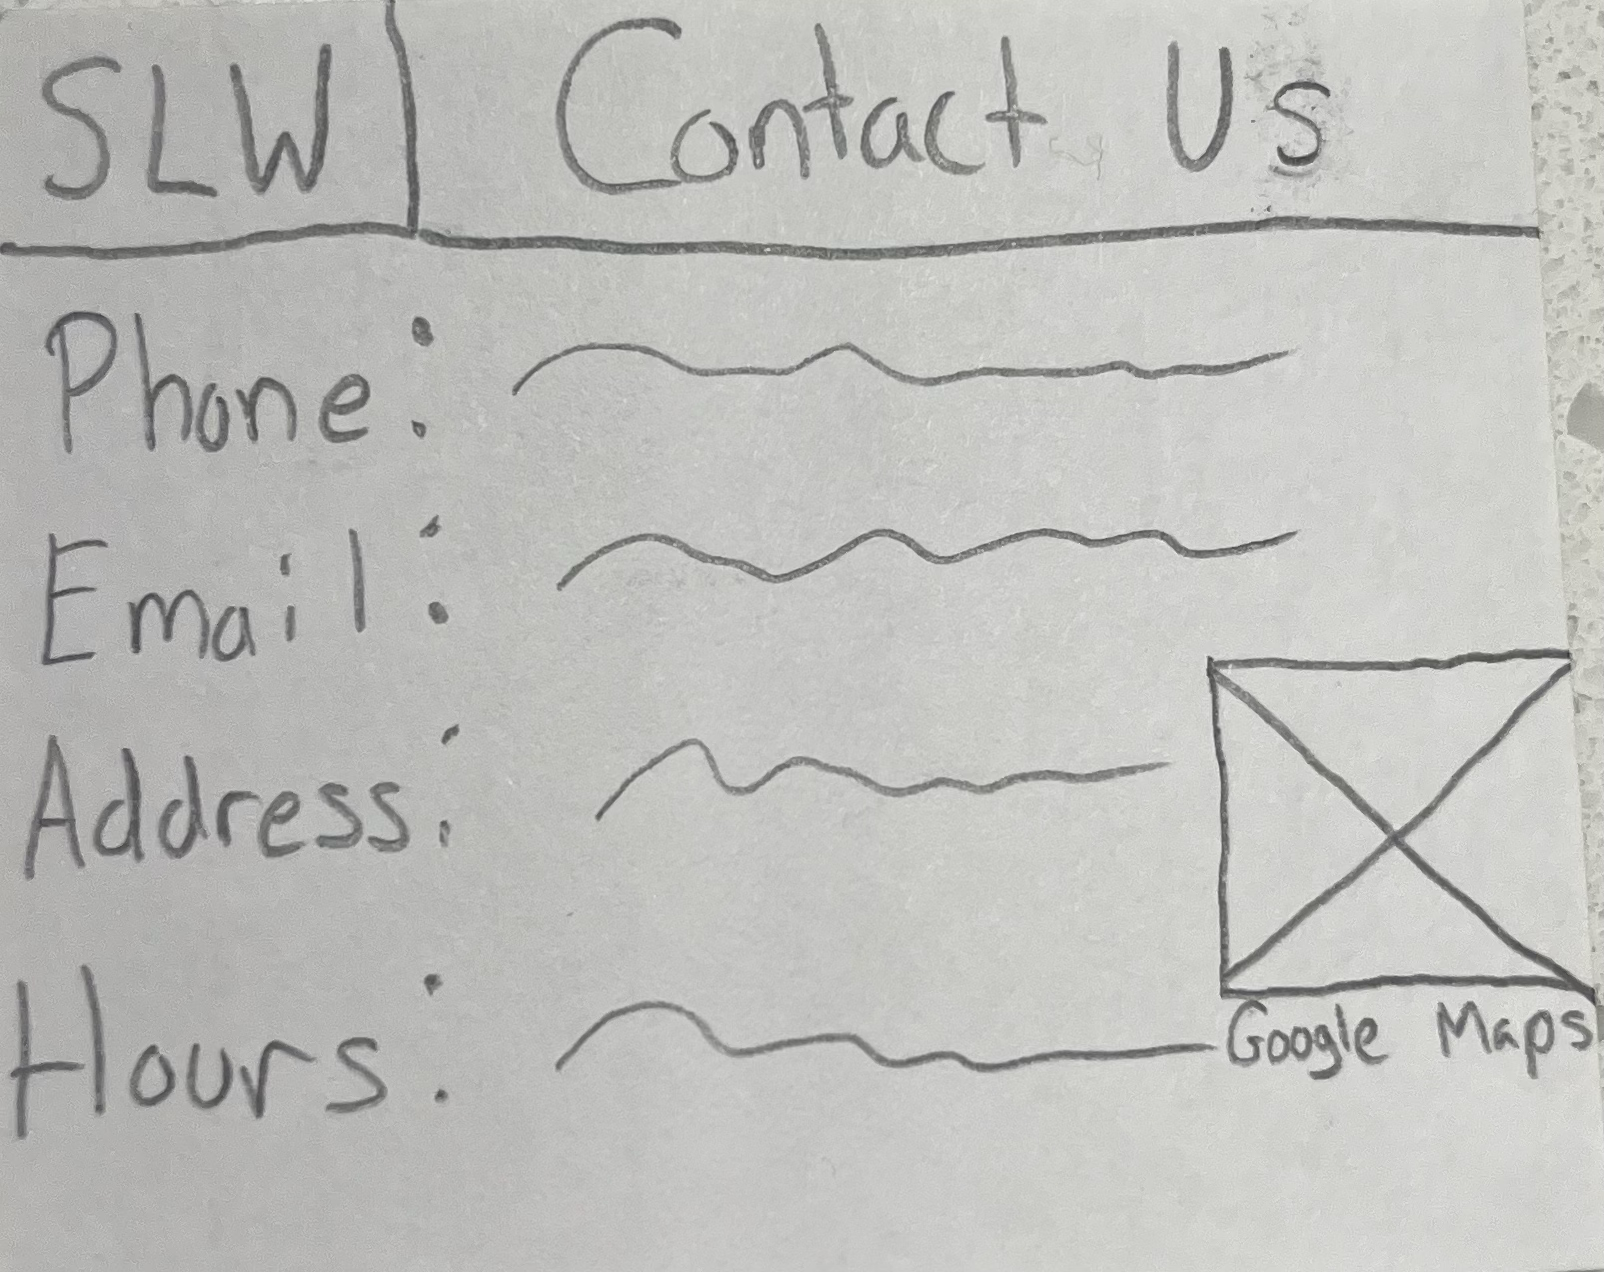 SLW Contact Us
Phone:
Email:
Address:
Hours:
Google Maps